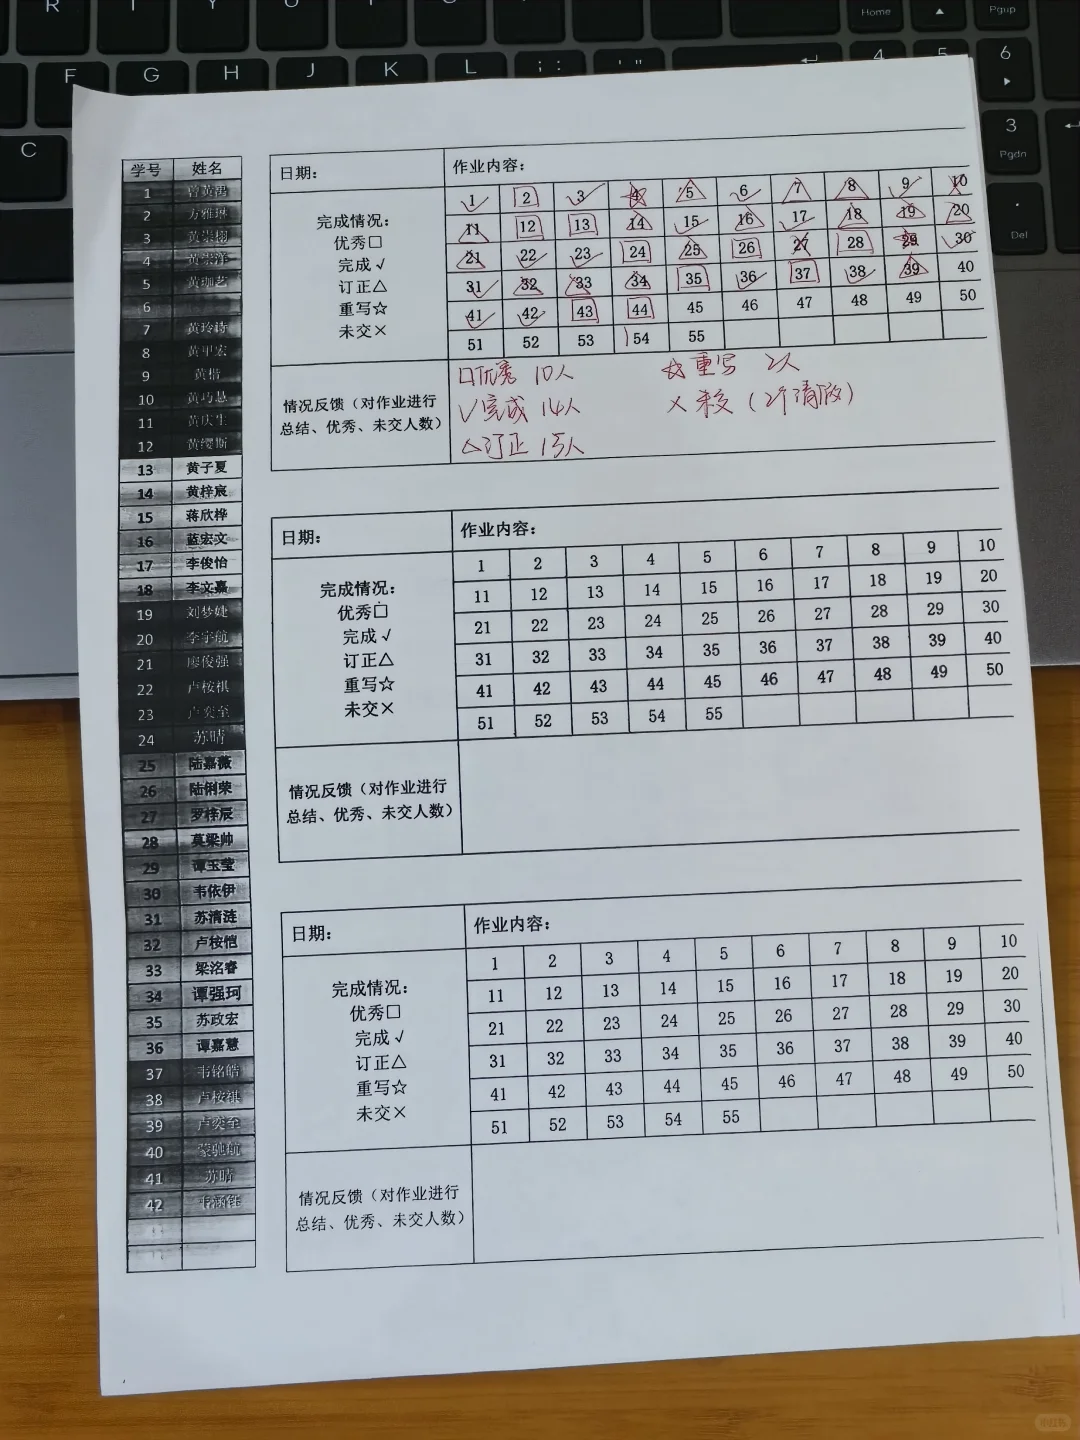 R
T
Y
U
I
O
P
Home
Pgup
F
G
H
J
K
L
; :
' "
4
5
6
C
3
Pgdn
Del
学号 姓名
1
2 方雅琳
3
4
5 黄珈艺
6
7
8
9 黄楷
10 黄巧恳
11 黄庆生
12 黄缨斯
13 黄子夏
14 黄梓宸
15 蒋欣桦
16 蓝宏文
17 李俊怡
18 李文嘉
19 刘梦婕
20 李宇航
21 廖俊强
22 卢桉祺
23 卢奕至
24 苏晴
25 陆嘉薇
26 陆俐荣
27 罗梓辰
28 莫梁帅
29 谭玉莹
30 韦依伊
31 苏清涟
32 卢桉恺
33 梁洺睿
34 谭强珂
35 苏政宏
36 谭嘉慧
37 韦铭皓
38 卢桉祺
39 卢奕至
40 蒙驰航
41 苏晴
42
日期： 作业内容：
完成情况：
优秀□
完成√
订正△
重写☆
未交×
1 2 3 4 5 6 7 8 9 10
11 12 13 14 15 16 17 18 19 20
21 22 23 24 25 26 27 28 29 30
31 32 33 34 35 36 37 38 39 40
41 42 43 44 45 46 47 48 49 50
51 52 53 54 55
情况反馈（对作业进行
总结、优秀、未交人数）
□优秀 10人 ☆重写 2人
√完成 14人 ×未交（2个清假）
△订正 15人
日期： 作业内容：
完成情况：
优秀□
完成√
订正△
重写☆
未交×
1 2 3 4 5 6 7 8 9 10
11 12 13 14 15 16 17 18 19 20
21 22 23 24 25 26 27 28 29 30
31 32 33 34 35 36 37 38 39 40
41 42 43 44 45 46 47 48 49 50
51 52 53 54 55
情况反馈（对作业进行
总结、优秀、未交人数）
日期： 作业内容：
完成情况：
优秀□
完成√
订正△
重写☆
未交×
1 2 3 4 5 6 7 8 9 10
11 12 13 14 15 16 17 18 19 20
21 22 23 24 25 26 27 28 29 30
31 32 33 34 35 36 37 38 39 40
41 42 43 44 45 46 47 48 49 50
51 52 53 54 55
情况反馈（对作业进行
总结、优秀、未交人数）
小红书